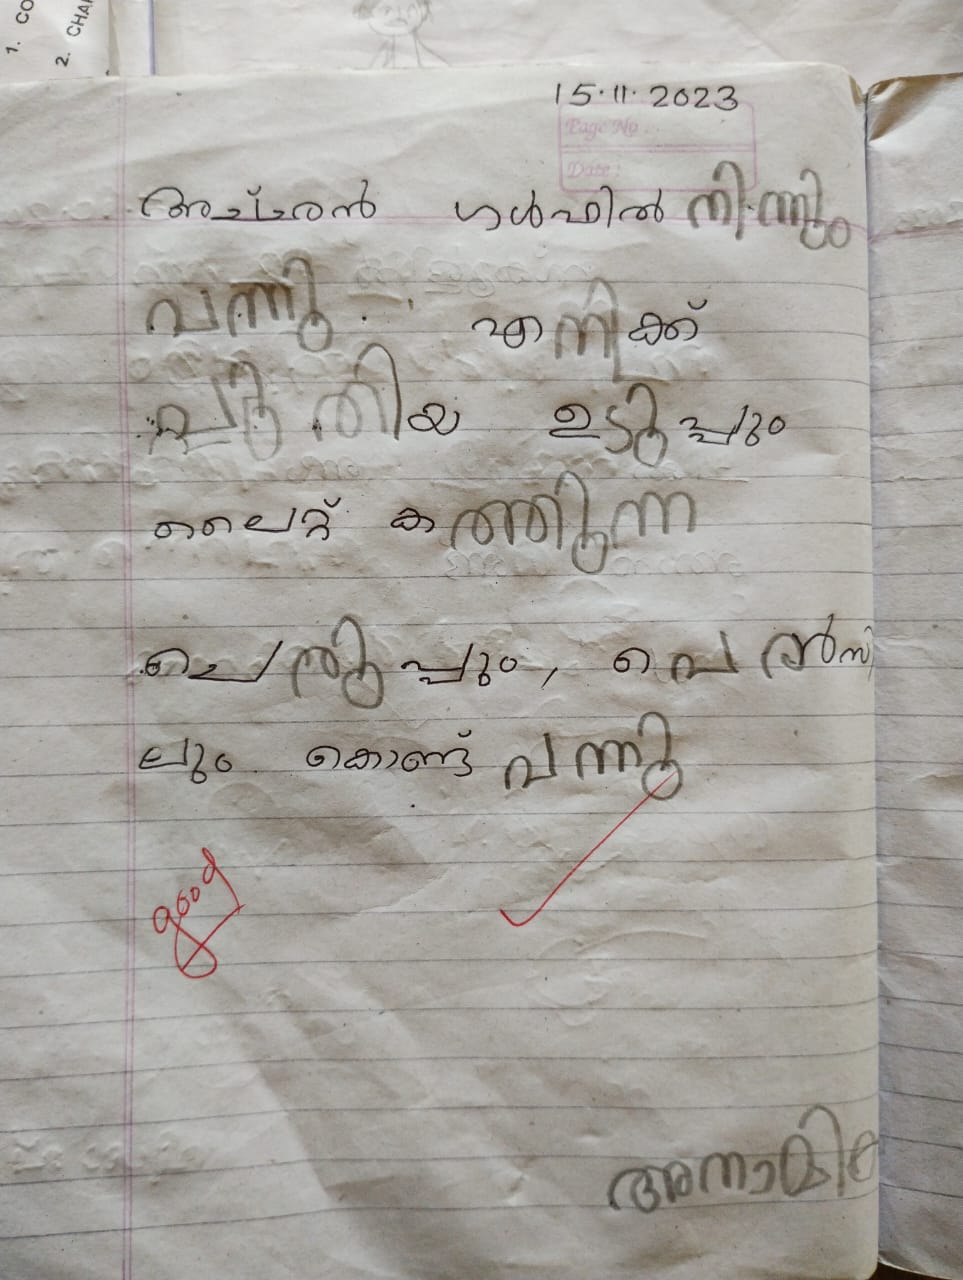 1. CO
2. CHA
15.11.2023
Page No.
Date :
അച്ഛൻ ഗൾഫിൽ നിന്നും
വന്നു. എനിക്ക്
പുതിയ ഉടുപ്പും
ലൈറ്റ് കത്തുന്ന
ചെരുപ്പും, പെൻസി
ലും കൊണ്ട് വന്നു
good
അനാമിക